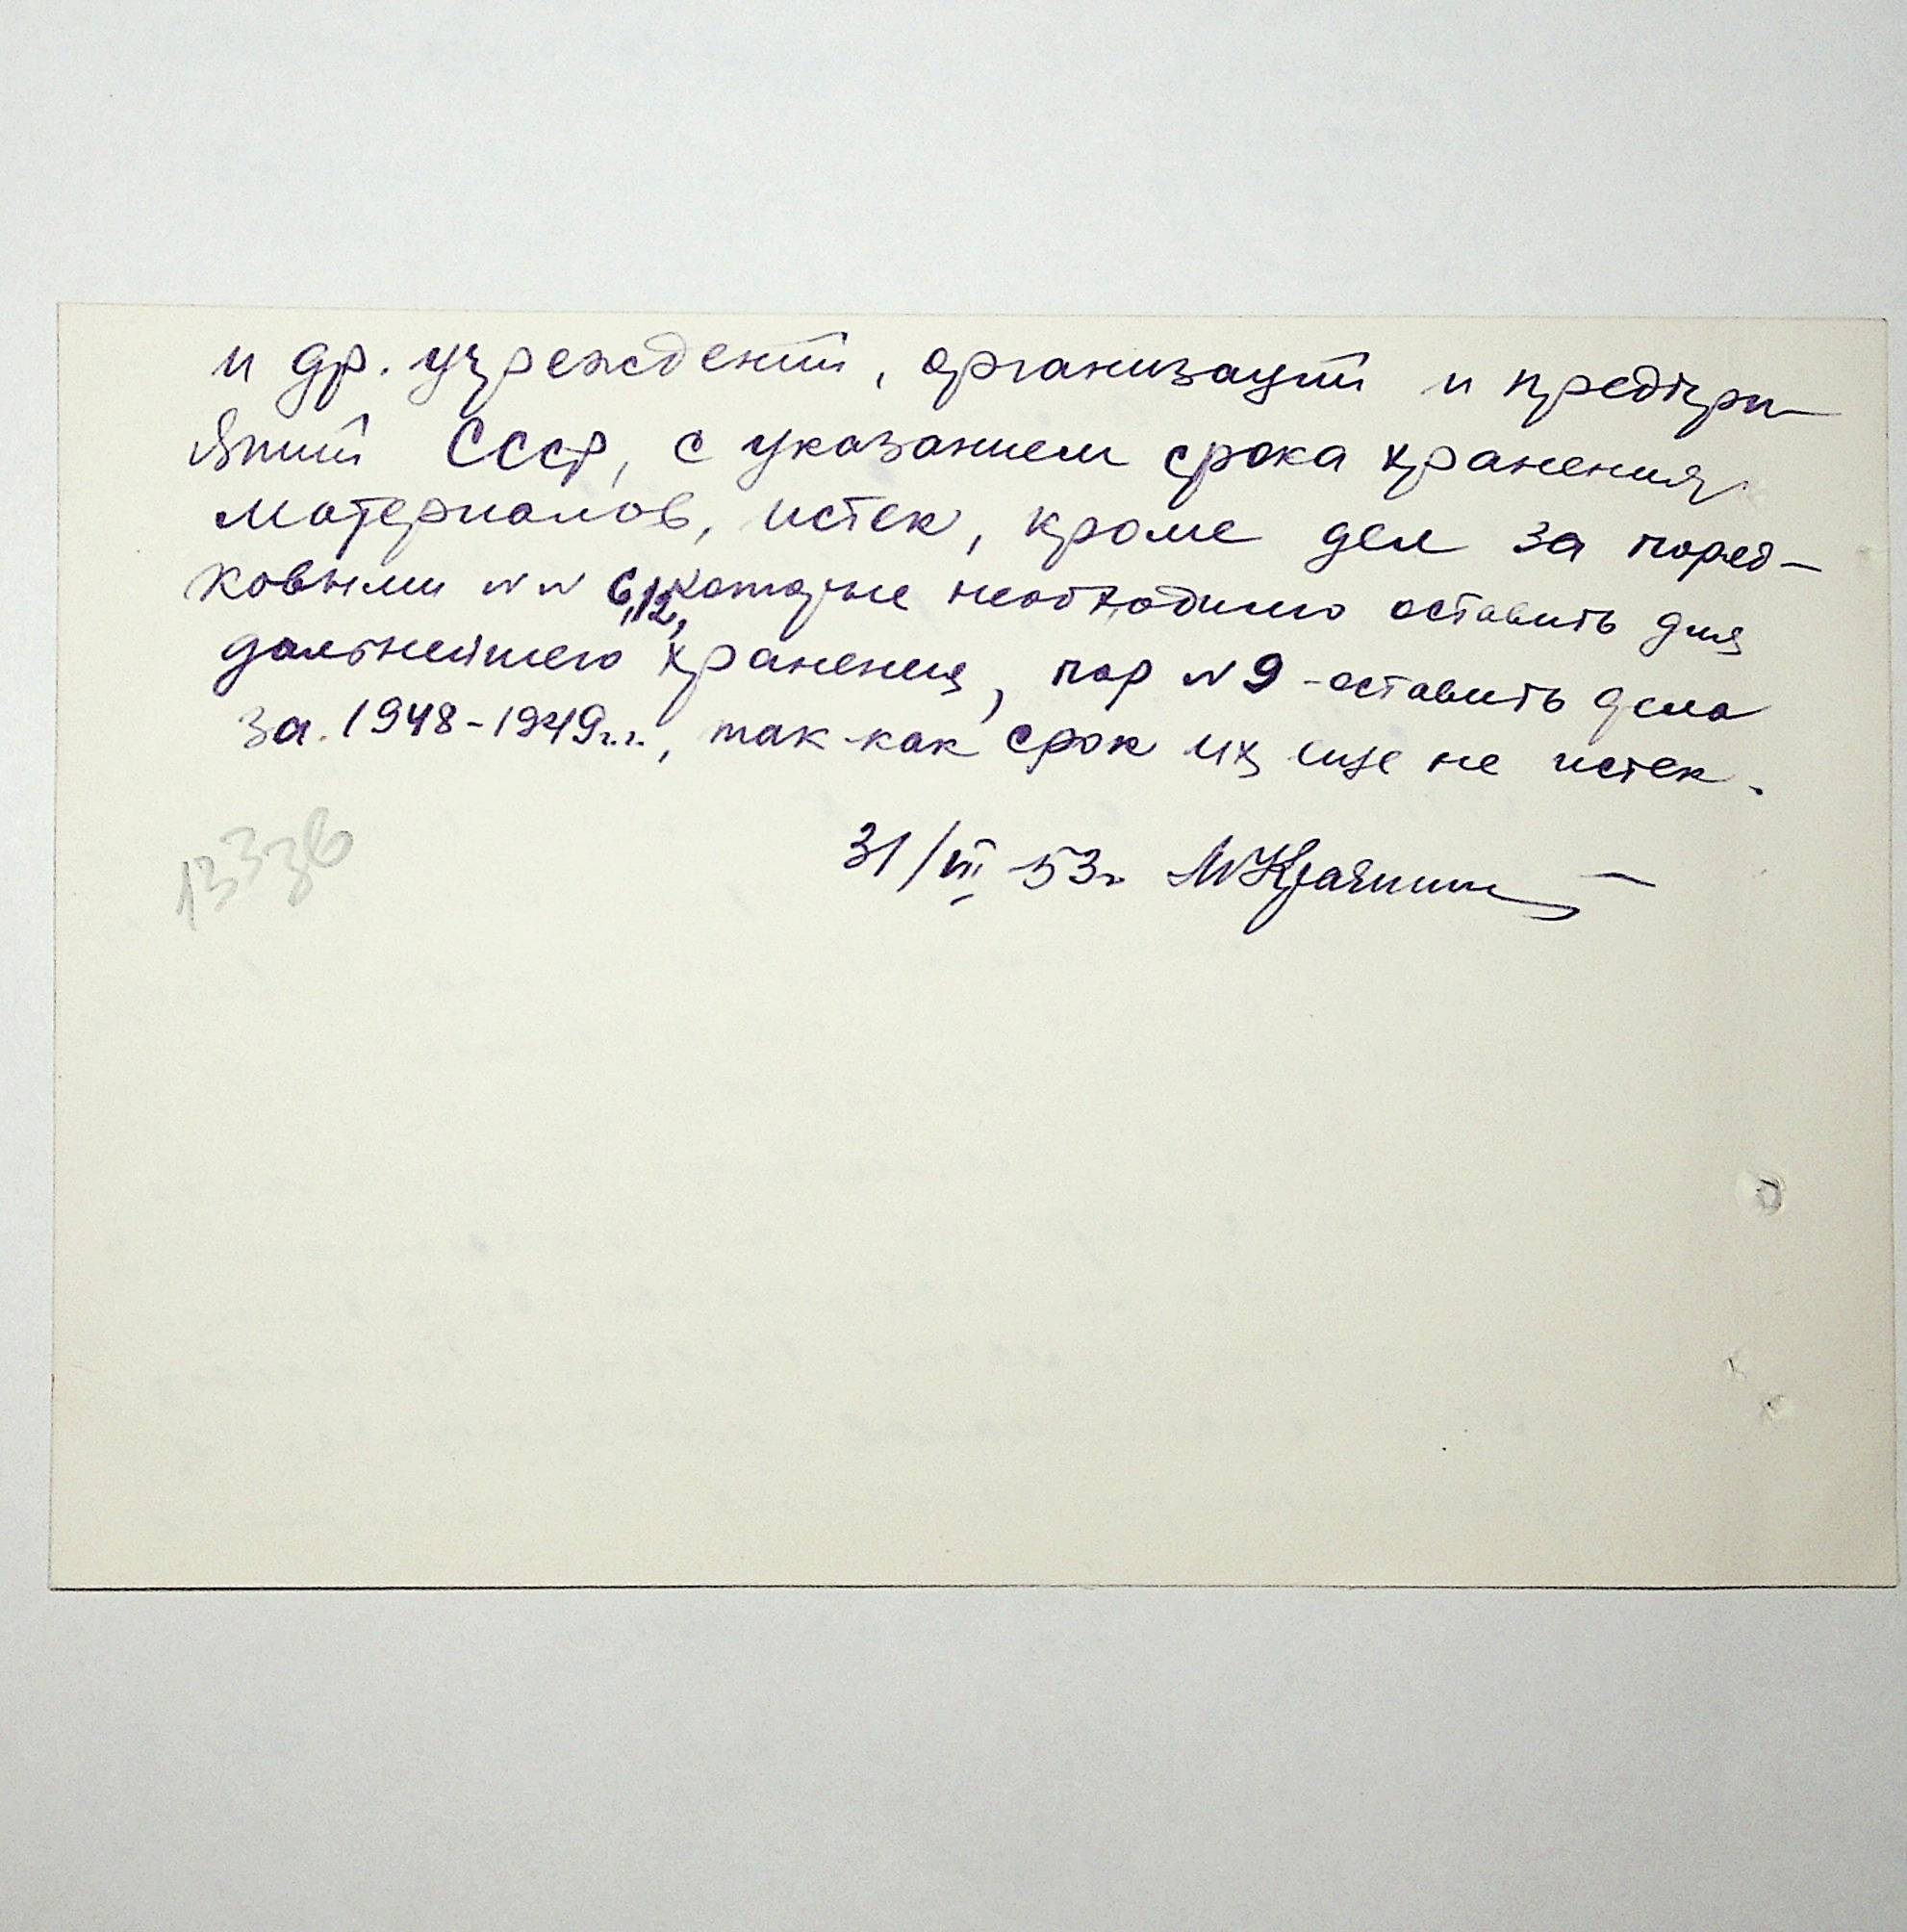 и др. учреждений, организаций и предпри-
ятий СССР, с указанием срока хранения
материалов, истек, кроме дел за поряд-
ковыми NN 6,12, которые необходимо оставить для
дальнейшего хранения, пор N 9 - оставить дела
за 1948-1949г.г., так-как срок их еще не истек.
31/VII 53г